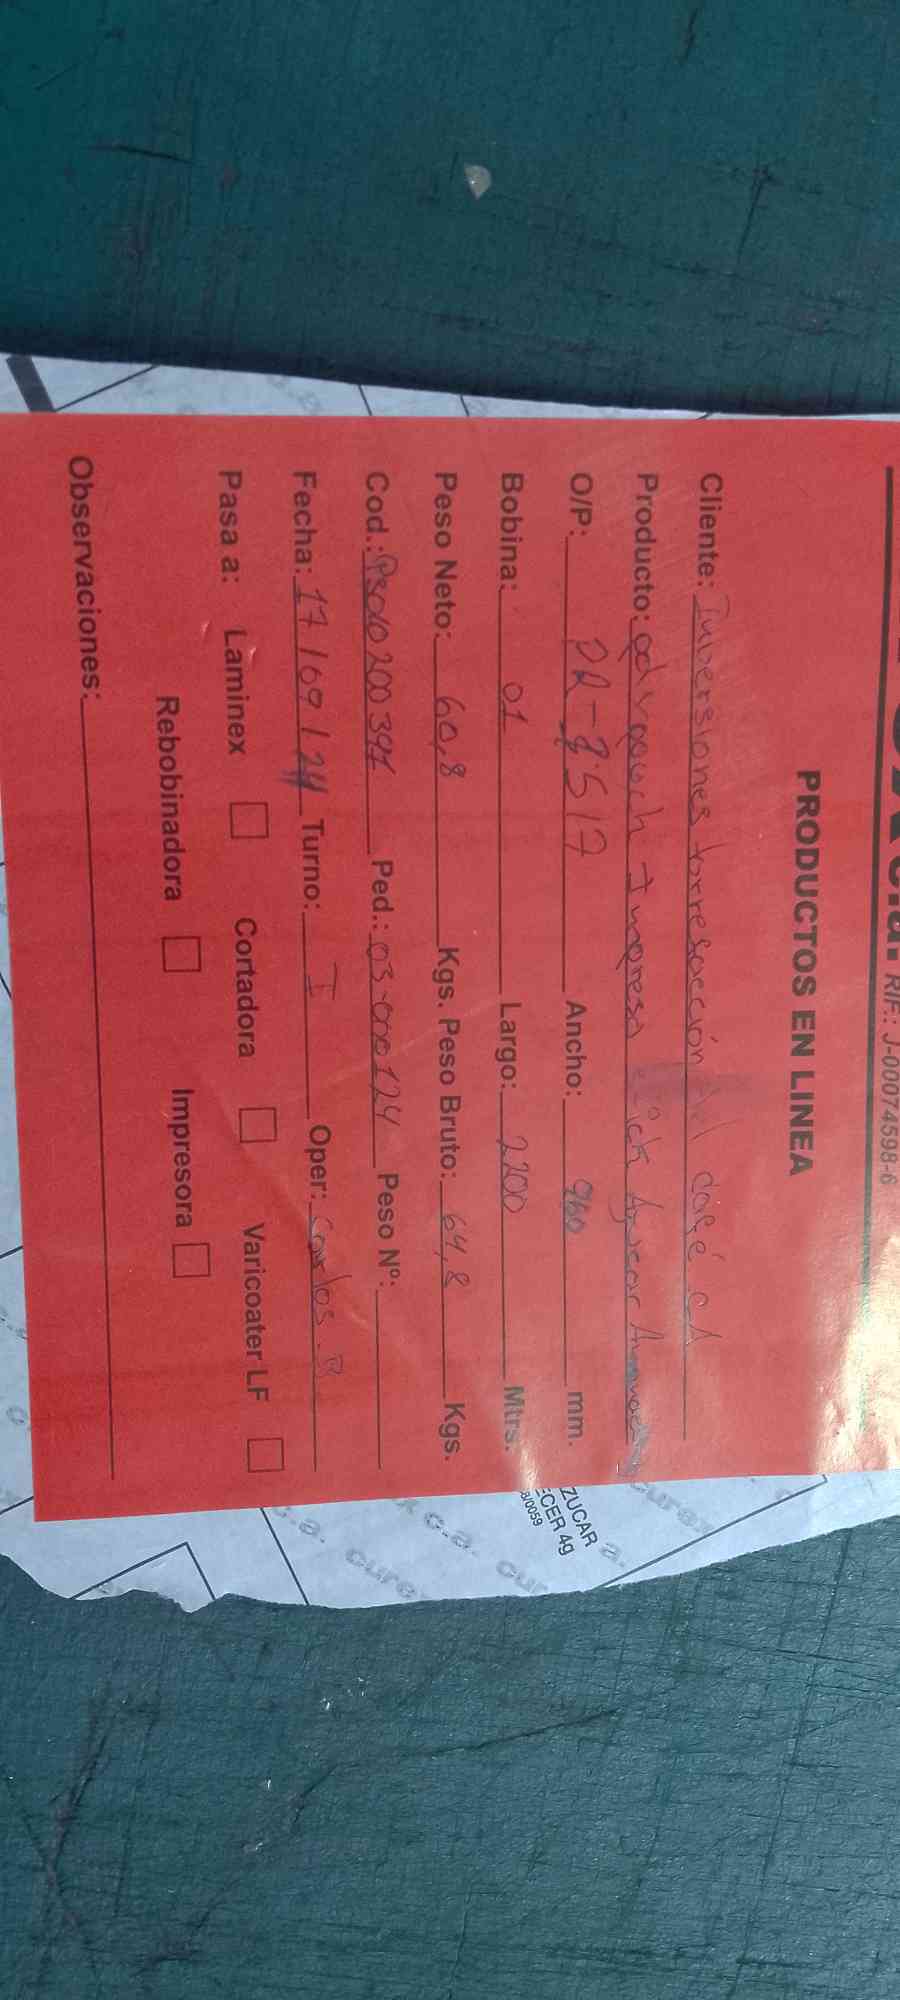 c.a. RIF.: J-00074598-6
PRODUCTOS EN LINEA
Cliente: Inversiones torrefacción del café CA
Producto: advpouch Impreso Stick Azucar
O/P: PR-8517 Ancho: 960 mm.
Bobina: 01 Largo: 2200 Mtrs.
Peso Neto: 60,8 Kgs. Peso Bruto: 64,8 Kgs.
Cod.: Ped.: 03-000124 Peso Nº:
Fecha: 17/09/24 Turno: I Oper: Carlos B
Pasa a: Laminex Cortadora Varicoater LF
Rebobinadora Impresora
Observaciones:
ZUCAR
ECER 4g
8/0059
a.
curex
x c.a. cur
c.a. curex